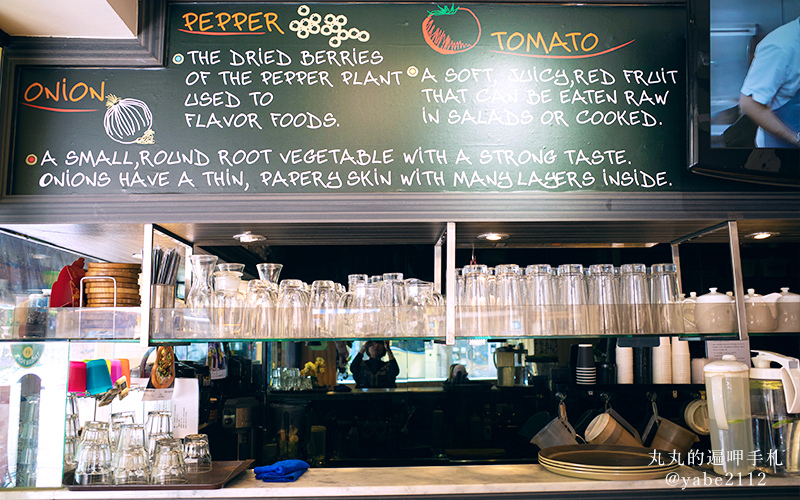 PEPPER
THE DRIED BERRIES
OF THE PEPPER PLANT
USED TO
FLAVOR FOODS.
TOMATO
A SOFT, JUICY,RED FRUIT
THAT CAN BE EATEN RAW
IN SALADS OR COOKED.
ONION
A SMALL,ROUND ROOT VEGETABLE WITH A STRONG TASTE.
ONIONS HAVE A THIN, PAPERY SKIN WITH MANY LAYERS INSIDE.
丸丸的逼呷手札
@yabe2112